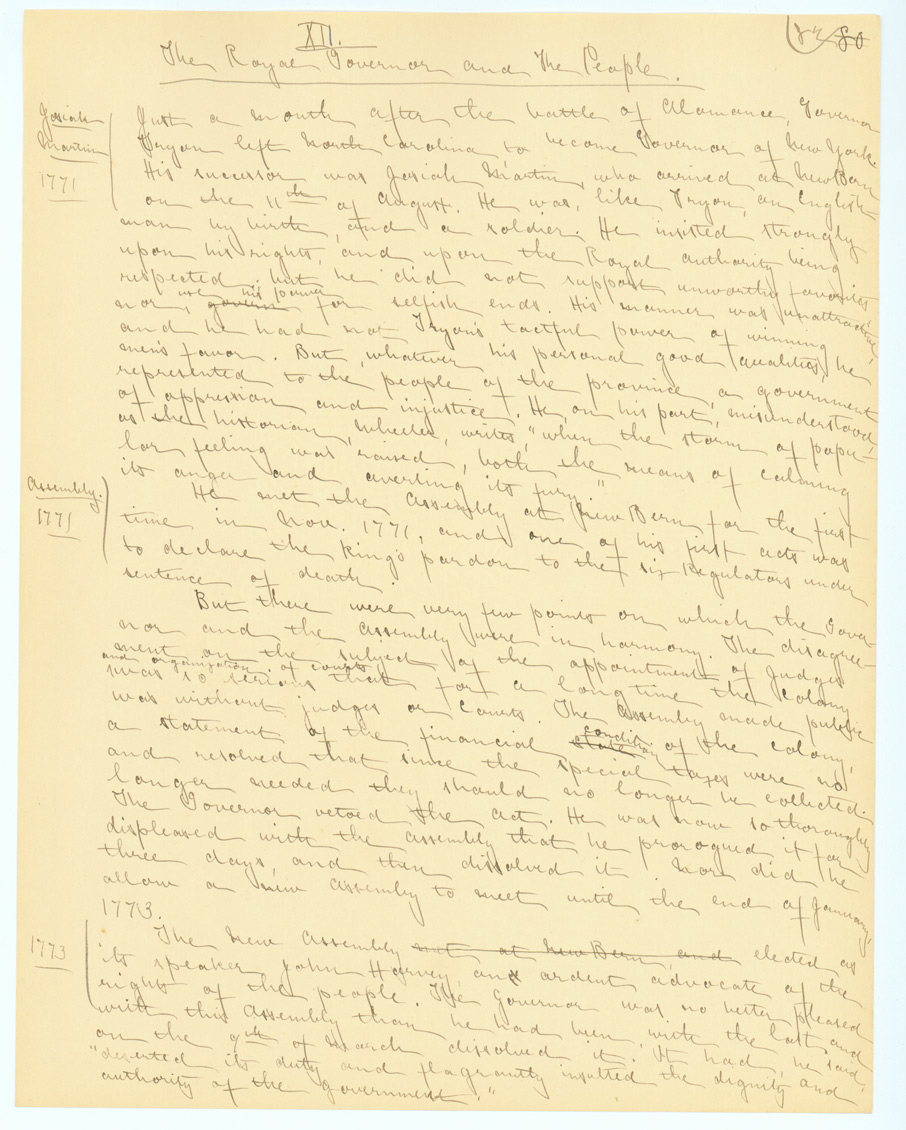 XII.
82 80
The Royal Governor and The People.
Josiah
Martin
1771
Just a month after the battle of Alamance, Governor
Tryon left North Carolina to become Governor of New York.
His successor was Josiah Martin, who arrived at New Bern
on the 11th of August. He was, like Tryon, an English-
man by birth, and a soldier. He insisted strongly
upon his rights, and upon the Royal authority being
respected; but he did not support unworthy favorites,
nor, govern use his power for selfish ends. His manner was unattractive,
and he had not Tryon's tactful power of winning
men's favor. But, whatever his personal good qualities, he
represented to the people of the province, a government
of oppression and injustice. He on his part, misunderstood,
as the historian, Wheeler, writes, "when the storm of popu-
lar feeling was raised, both the means of calming
its anger and averting its fury."
Assembly.
1771
He met the Assembly at New Bern for the first
time in Nov. 1771, and one of his first acts was
to declare the king's pardon to the six Regulators under
sentence of death.
But there were very few points on which the Gover-
nor and the Assembly were in harmony. The disagree-
ment on the subject of the appointment of Judges
and organization of courts
was so serious that for a long time the Colony
was without judges or Courts. The Assembly made public
a statement of the financial state condition of the colony,
and resolved that since the special taxes were no
longer needed they should no longer be collected.
The Governor vetoed the act. He was now so thoroughly
displeased with the Assembly that he prorogued it for
three days, and then dissolved it. Nor did he
allow a new Assembly to meet until the end of January,
1773.
1773
The New Assembly met at New Bern, and elected as
its speaker, John Harvey, an ardent advocate of the
rights of the people. The Governor was no better pleased
with this Assembly than he had been with the last, and
on the 9th of March dissolved it. It had, he said,
"deserted its duty and flagrantly insulted the dignity and
authority of the government."